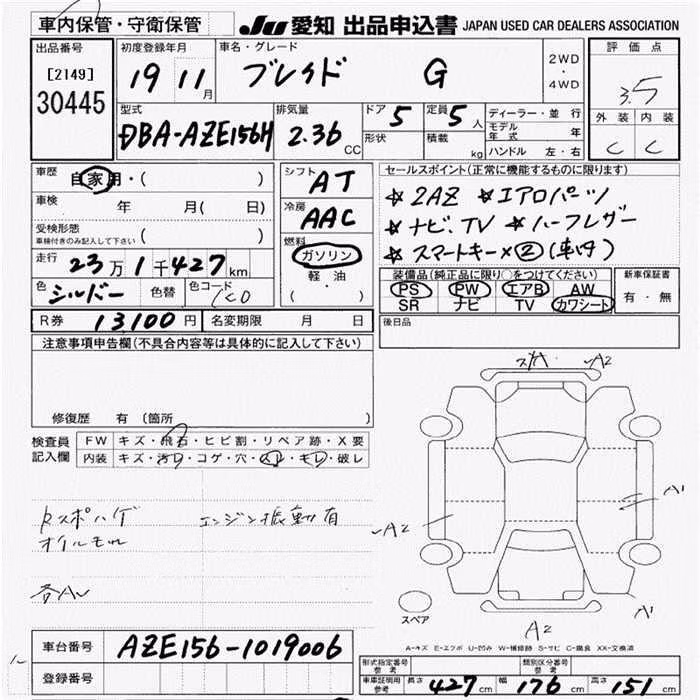 車内保管・守衛保管 JU 愛知 出品申込書 JAPAN USED CAR DEALERS ASSOCIATION
出品番号 [2149] 30445
初度登録年月 19 11月
車名・グレード ブレイド G
2WD・4WD
評価点 3.5
外装 内装
C C
型式 DBA-AZE156H
排気量 2.36 CC
ドア 5
定員 5人
形状
積載 kg
ディーラー・並行
モデル年式 年
ハンドル 左・右
車歴 自家用・( )
車検 年 月( 日)
受検形態 車検付きのみ記入して下さい ( )
走行 23万1千427km
色 シルバー 色替 色コード 1C0
シフト AT
冷房 AAC
燃料 ガソリン
軽・油
( )
セールスポイント(正常に機能するものに限ります)
☆ 2AZ ☆ エアロパーツ
☆ ナビ、TV ☆ ハーフレザー
☆ スマートキー×②(車付)
装備品(純正品に限り○をつけてください)
PS PW エアB AW
SR ナビ TV カワシート
新車保証書 有・無
R券 13100円 名変期限 月 日
後日品
注意事項申告欄(不具合内容等は具体的に記入して下さい)
修復歴 有(箇所 )
検査員記入欄
FW キズ・飛石・ヒビ割・リペア跡・X要
内装 キズ・汚レ・コゲ・穴・スレ・キレ・破レ
エンジン振動有
オイルモレ
A2
A1
A2
A1
A2
スペア
A-キズ E-エクボ U-凹み W-補修跡 S-サビ C-腐食 XX-交換済
車台番号 AZE156-1019006
登録番号
形式指定番号 参考
類別区分番号 参考
車庫証明用 参考 長さ 427cm 幅 176cm 高さ 151cm